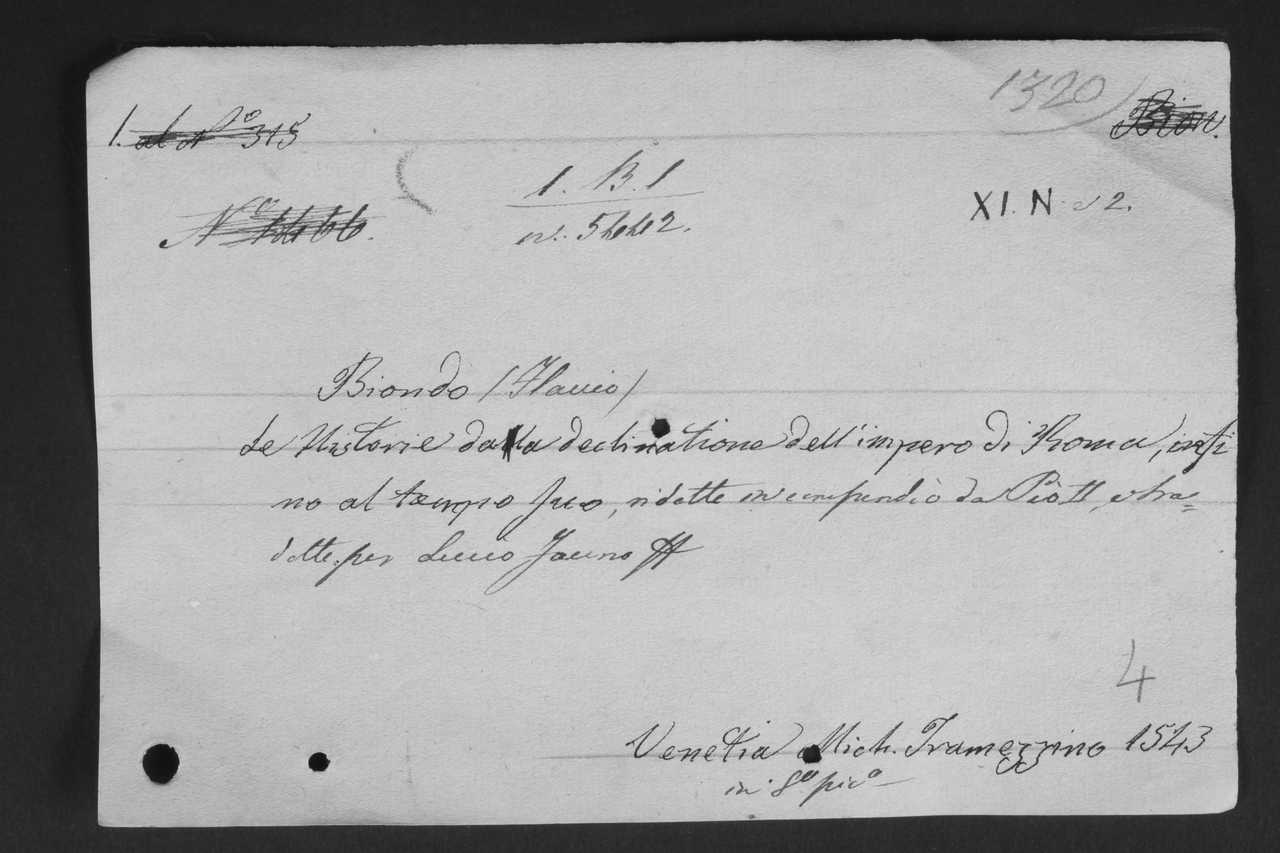 1320
1. al N° 315
Bion.
1. B. 1
N° 1466.
in. 5442.
XI. N. 2.
Biondo (Flavio)
Le Historie dalla declinatione dell'impero di Roma, insi
no al tempo suo, ridotte in compendio da Pio II, e tra=
dotte per Lucio Fauno
4
Venetia Mich. Tramezzino 1543
in 8° pic°